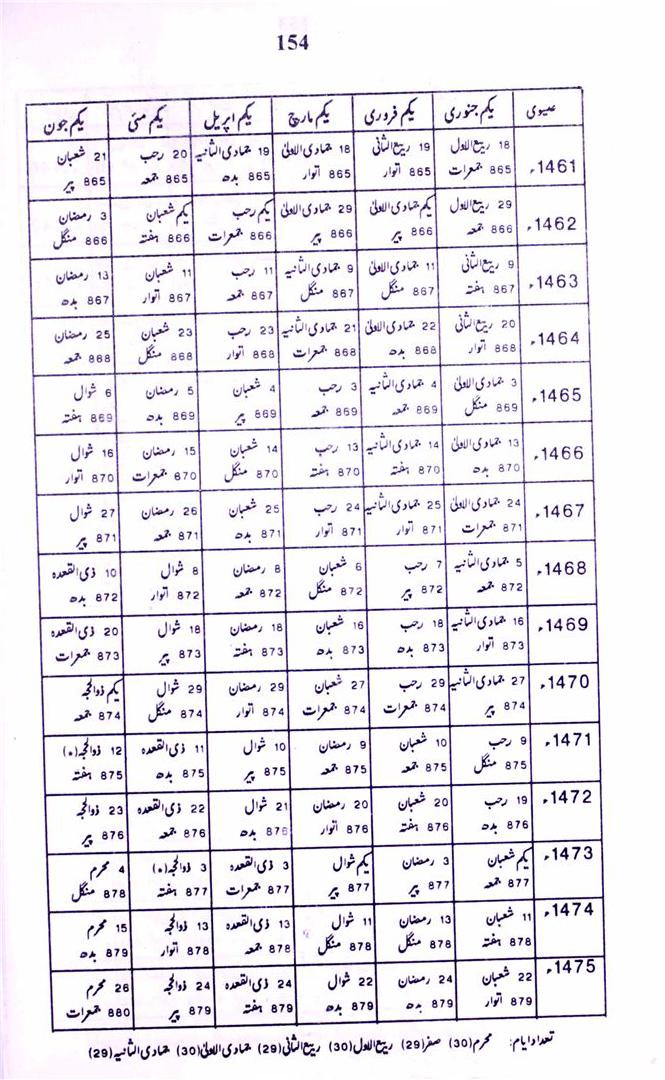 154
عیسوی یکم جنوری یکم فروری یکم مارچ یکم اپریل یکم مئی یکم جون
1461ء 18 ربیع الاول 19 ربیع الثانی 18 جمادی الاولیٰ 19 جمادی الثانیہ 20 رجب 21 شعبان
865 جمعرات 865 اتوار 865 اتوار 865 بدھ 865 جمعہ 865 پیر
1462ء 29 ربیع الاول یکم جمادی الاولیٰ 29 جمادی الاولیٰ یکم رجب یکم شعبان 3 رمضان
866 جمعہ 866 پیر 866 پیر 866 جمعرات 866 ہفتہ 866 منگل
1463ء 9 ربیع الثانی 11 جمادی الاولیٰ 9 جمادی الثانیہ 11 رجب 11 شعبان 13 رمضان
867 ہفتہ 867 منگل 867 منگل 867 جمعہ 867 اتوار 867 بدھ
1464ء 20 ربیع الثانی 22 جمادی الاولیٰ 21 جمادی الثانیہ 23 رجب 23 شعبان 25 رمضان
868 اتوار 868 بدھ 868 جمعرات 868 اتوار 868 منگل 868 جمعہ
1465ء 3 جمادی الاولیٰ 4 جمادی الثانیہ 3 رجب 4 شعبان 5 رمضان 6 شوال
869 منگل 869 جمعہ 869 جمعہ 869 پیر 869 بدھ 869 ہفتہ
1466ء 13 جمادی الاولیٰ 14 جمادی الثانیہ 13 رجب 14 شعبان 15 رمضان 16 شوال
870 بدھ 870 ہفتہ 870 ہفتہ 870 منگل 870 جمعرات 870 اتوار
1467ء 24 جمادی الاولیٰ 25 جمادی الثانیہ 24 رجب 25 شعبان 26 رمضان 27 شوال
871 جمعرات 871 اتوار 871 اتوار 871 بدھ 871 جمعہ 871 پیر
1468ء 5 جمادی الثانیہ 7 رجب 6 شعبان 8 رمضان 8 شوال 10 ذی القعدہ
872 جمعہ 872 پیر 872 منگل 872 جمعہ 872 اتوار 872 بدھ
1469ء 16 جمادی الثانیہ 18 رجب 16 شعبان 18 رمضان 18 شوال 20 ذی القعدہ
873 اتوار 873 بدھ 873 بدھ 873 ہفتہ 873 پیر 873 جمعرات
1470ء 27 جمادی الثانیہ 29 رجب 27 شعبان 29 رمضان 29 شوال یکم ذوالحجہ
874 پیر 874 جمعرات 874 جمعرات 874 اتوار 874 منگل 874 جمعہ
1471ء 9 رجب 10 شعبان 9 رمضان 10 شوال 11 ذی القعدہ 12 ذوالحجہ (*)
875 منگل 875 جمعہ 875 جمعہ 875 پیر 875 بدھ 875 ہفتہ
1472ء 19 رجب 20 شعبان 20 رمضان 21 شوال 22 ذی القعدہ 23 ذوالحجہ
876 بدھ 876 ہفتہ 876 اتوار 876 بدھ 876 جمعہ 876 پیر
1473ء یکم شعبان 3 رمضان یکم شوال 3 ذی القعدہ 3 ذوالحجہ (*) 4 محرم
877 جمعہ 877 پیر 877 پیر 877 جمعرات 877 ہفتہ 878 منگل
1474ء 11 شعبان 13 رمضان 11 شوال 13 ذی القعدہ 13 ذوالحجہ 15 محرم
878 ہفتہ 878 منگل 878 منگل 878 جمعہ 878 اتوار 879 بدھ
1475ء 22 شعبان 24 رمضان 22 شوال 24 ذی القعدہ 24 ذوالحجہ 26 محرم
879 اتوار 879 بدھ 879 بدھ 879 ہفتہ 879 پیر 880 جمعرات
تعداد ایام: محرم (30) صفر (29) ربیع الاول (30) ربیع الثانی (29) جمادی الاولیٰ (30) جمادی الثانیہ (29)